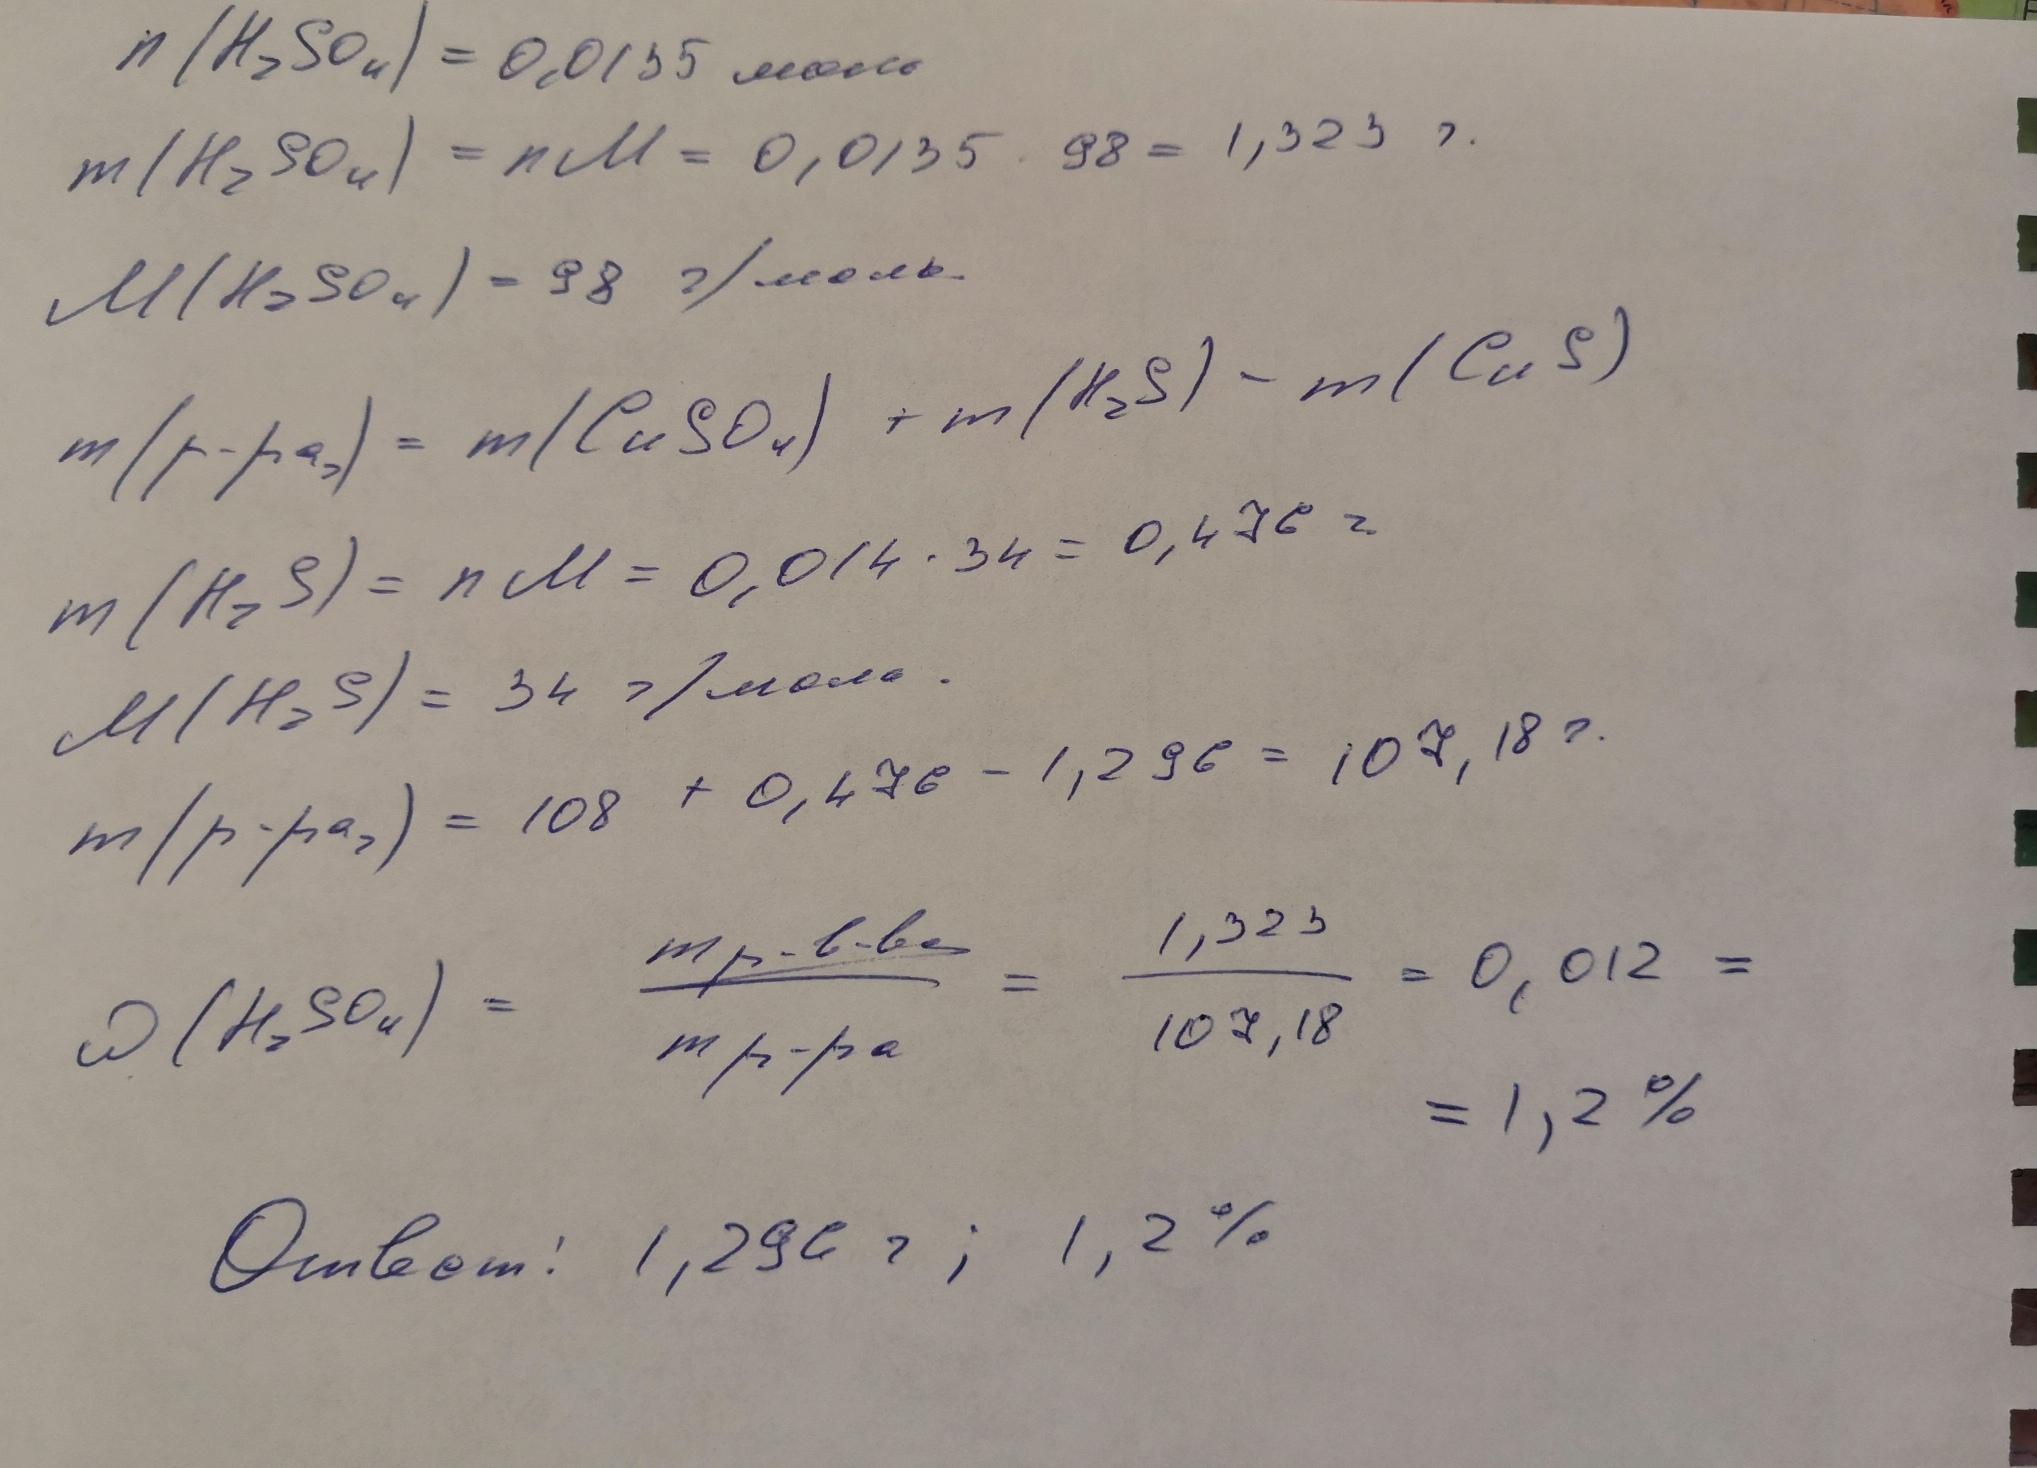 n(H₂SO₄) = 0,0135 моль
m(H₂SO₄) = nM = 0,0135 · 98 = 1,323 г.
M(H₂SO₄) = 98 г/моль
m(р-ра₂) = m(CuSO₄) + m(H₂S) - m(CuS)
m(H₂S) = nM = 0,014 · 34 = 0,476 г.
M(H₂S) = 34 г/моль.
m(р-ра₂) = 108 + 0,476 - 1,296 = 107,18 г.
ω(H₂SO₄) = m р-в-ва / m р-ра = 1,323 / 107,18 = 0,012 =
= 1,2 %
Ответ: 1,296 г; 1,2 %